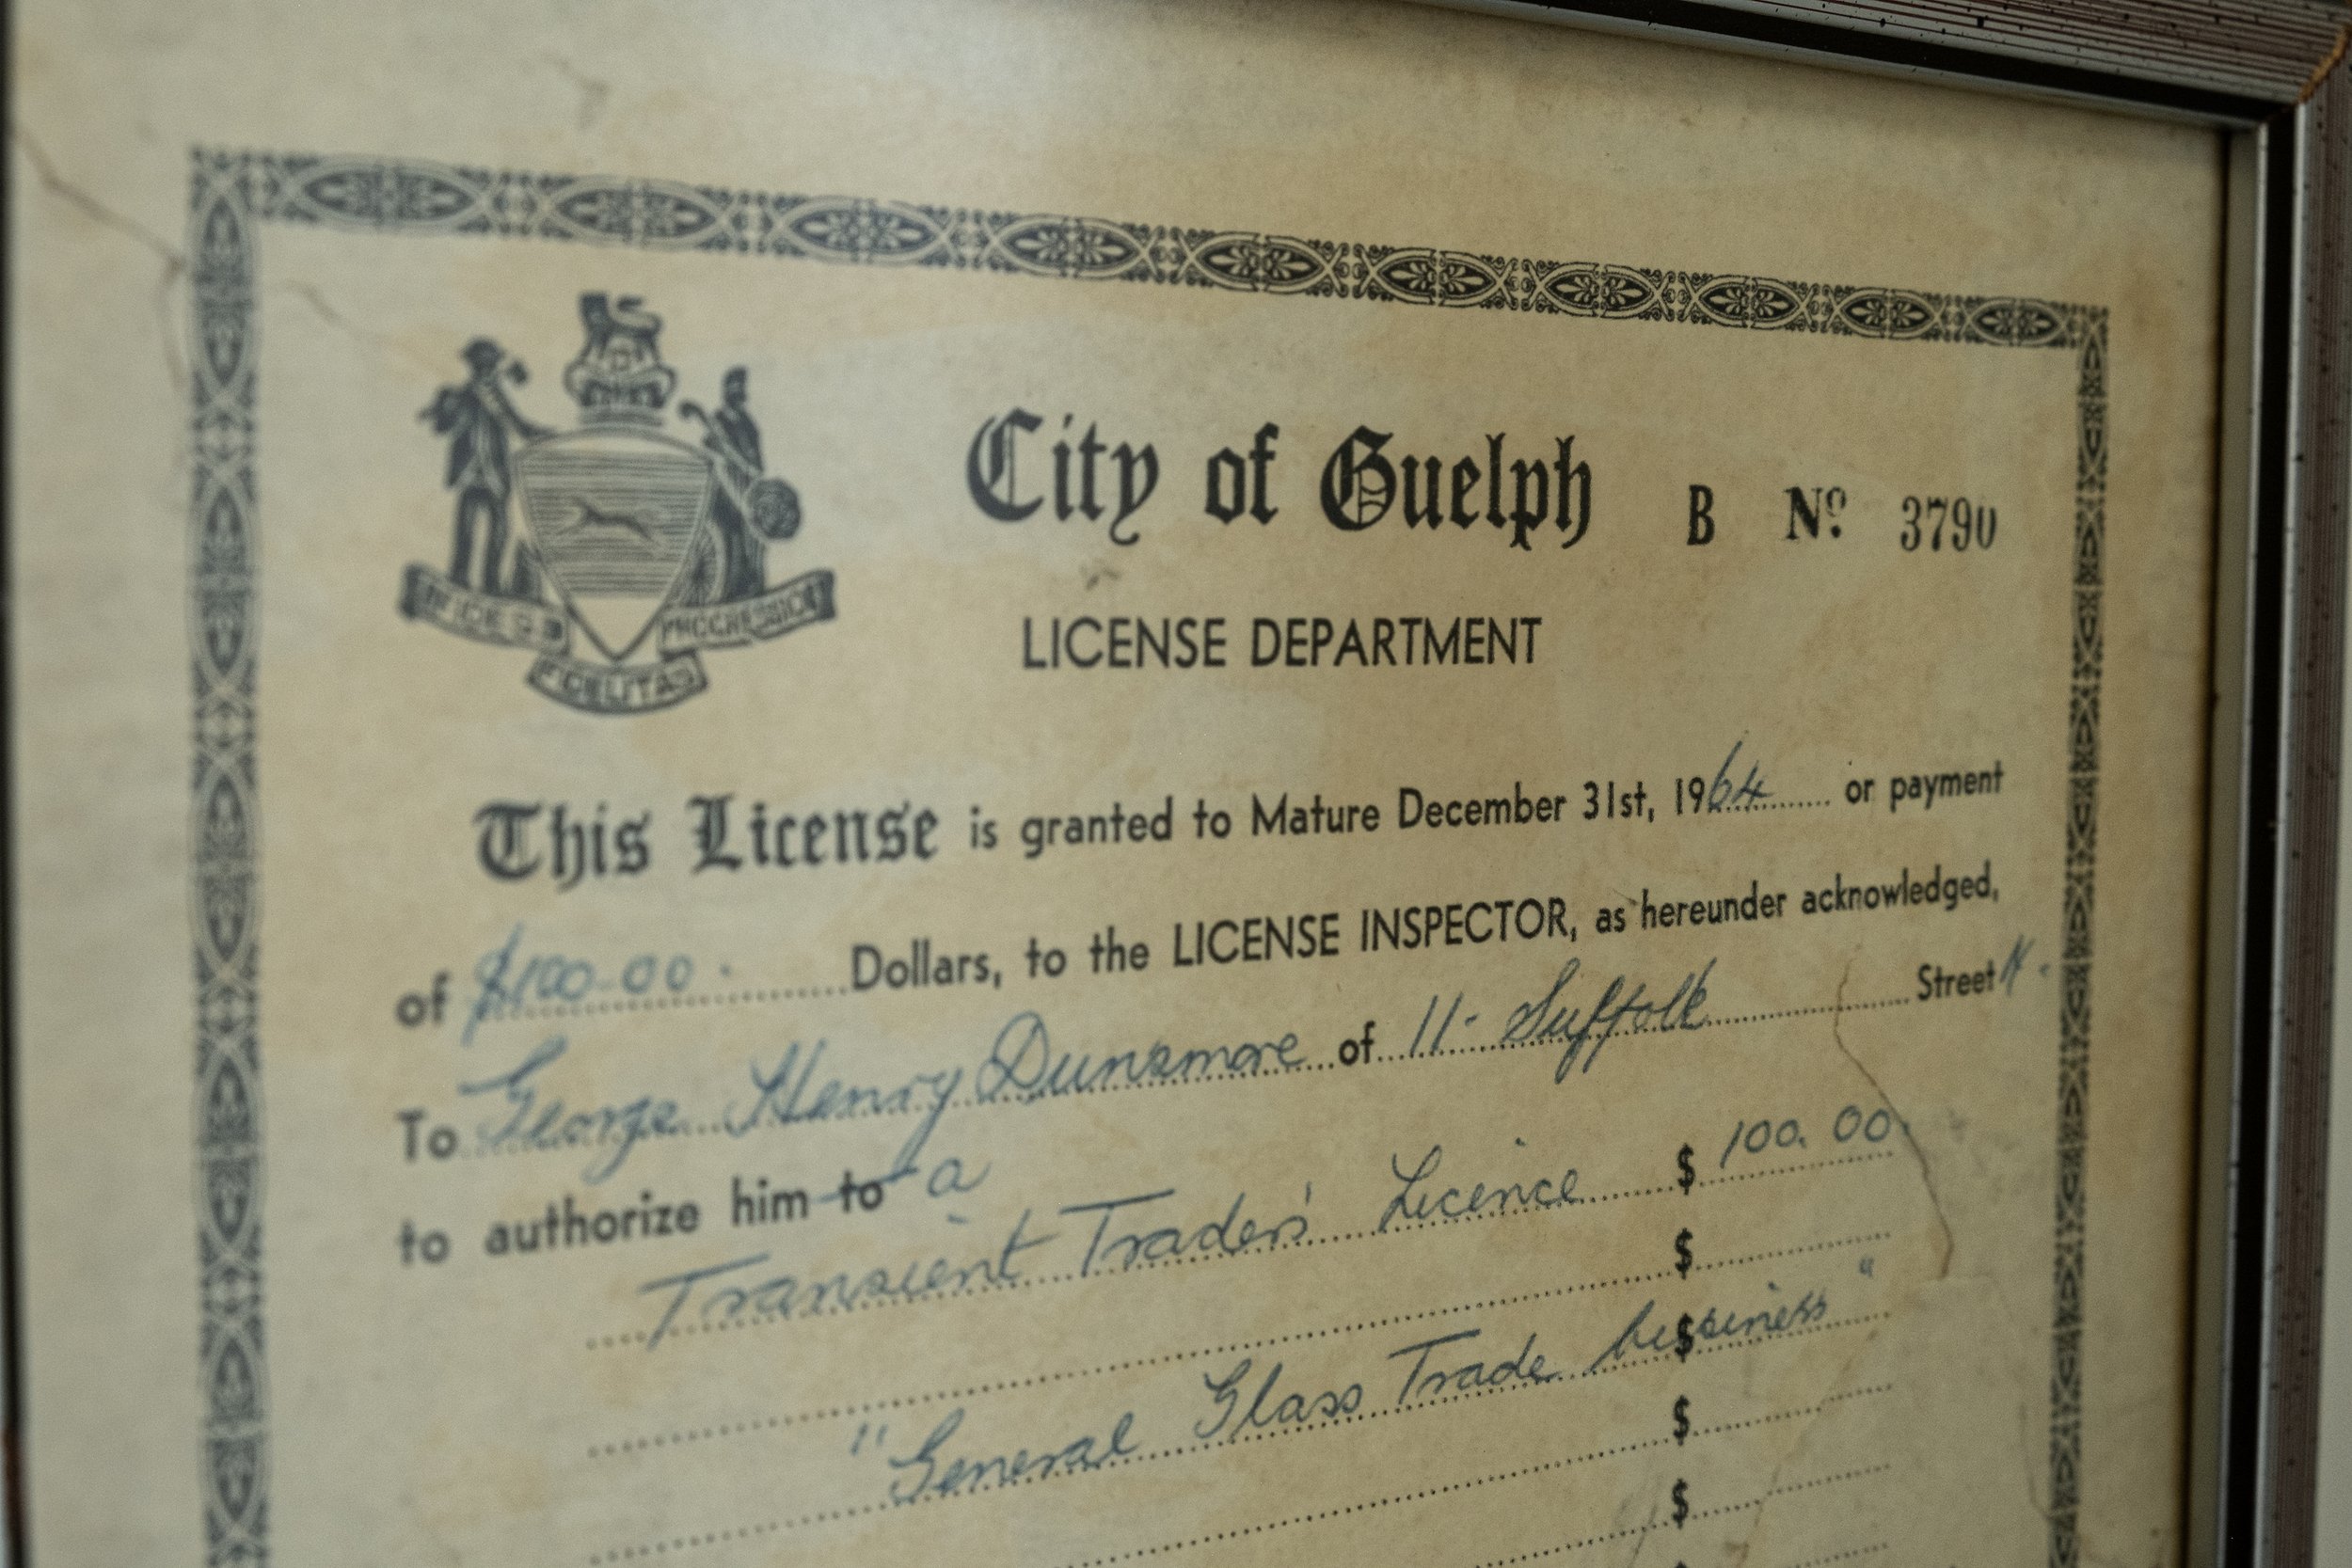 City of Guelph B Nº 3790
FIDES PROGRESSIO
FIDELITAS
LICENSE DEPARTMENT
This License is granted to Mature December 31st, 1964 or payment
of $100.00. Dollars, to the LICENSE INSPECTOR, as hereunder acknowledged,
To George Henry Dunsmore of 11- Suffolk Street
to authorize him to a
Transient Traders' Licence $ 100.00
$
"General Glass Trade business" $
$
$